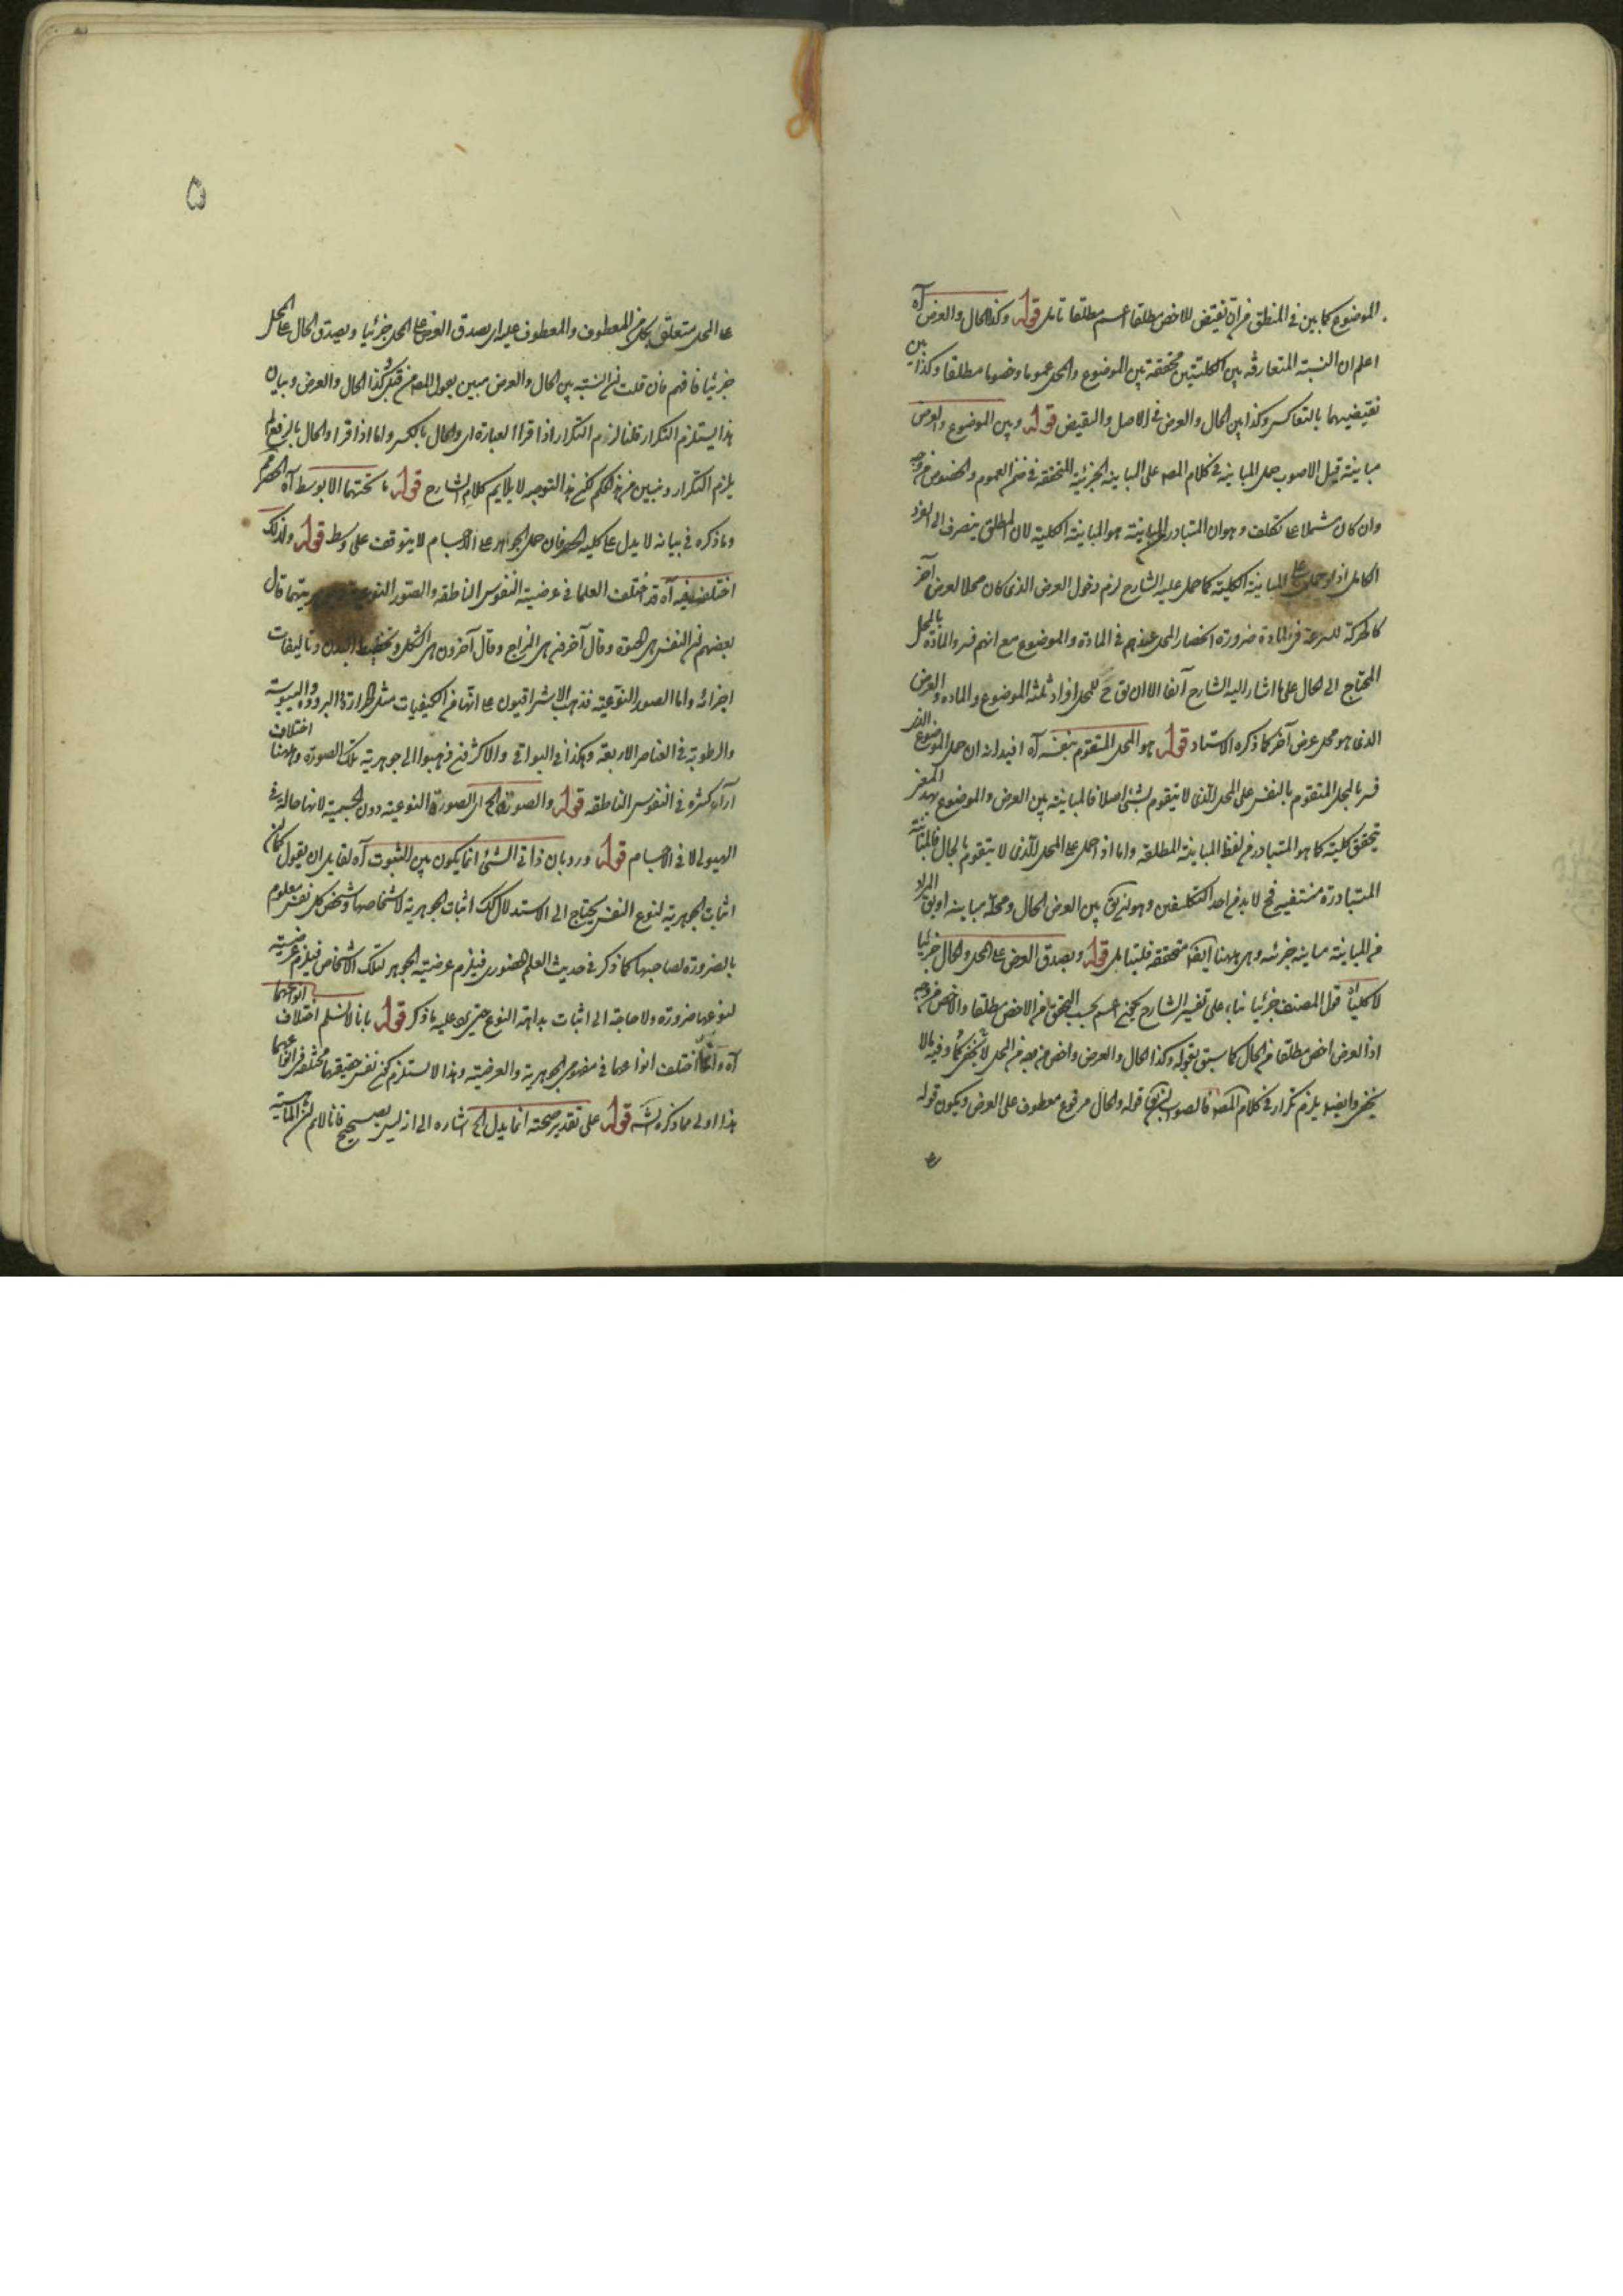 الموضوع كما بين في المنطق من ان نقيض الاخص مطلقا اعم مطلقا تامل قوله وكذا الحال والعرض آه
اعلم ان النسبة المتعارفة بين الكليتين متحققة بين الموضوع والمحل عموما وخصوصا مطلقا وكذا بين
نقيضيهما بالتعاكس وكذا بين الحال والعرض في الاصل والنقيض قوله وبين الموضوع والعرض
مباينة قيل الاصوب حمل المباينة في كلام المصـ على المباينة الجزئية المتحققة في ضمن العموم والخصوص من وجه
وان كان مشتملا على تكلف وهو ان المتبادر من المباينة هو المباينة الكلية لان المطلق ينصرف الى الفرد
الكامل اذ لو حمل على المباينة الكلية كما حمل عليه الشارح لزم دخول العرض الذي كان محلا لعرض آخر
كالحركة للسرعة في المادة ضرورة انحصار المحل عندهم في المادة والموضوع مع انهم فسروا المادة بالمحل
المحتاج الى الحال على ما اشار اليه الشارح آنفا الا ان يق ح للمحل افراد ثلثة الموضوع والمادة والعرض
الذي هو محل عرض آخر كما ذكره الاستاد قوله هو المحل المتقوم بنفسه آه افيد انه ان حمل الموضوع الذي
فسر بالمحل المتقوم بالنفس على المحل الذي لا يتقوم بشئ اصلا فالمباينة بين العرض والموضوع بهذا المعنى
يتحقق كلية كما هو المتبادر من لفظ المباينة المطلقة واما اذا حمل على المحل الذي لا يتقوم بالحال فالمباينة
المتبادرة منتفية فح لا بد من احد التكلفين وهو ان يق بين العرض الحال ومحله مباينة او يق المراد
من المباينة مباينة جزئية وهي ههنا ايضا متحققة فليتامل قوله ويصدق العرض على المحل والحال جزئيا
لا كليا آه قول المصنف جزئيا بناء على تفسير الشارح يجئ اعم بحسب التحقق من الاخص مطلقا والاخص من وجه
اذ العرض اخص مطلقا من الحال كما سبق بقوله وكذا الحال والعرض واخص من وجه من المحل لا يخفى وفيه ما لا
يخفى وايضا يلزم تكرار في كلام المصـ فالصواب ان يق قوله والحال مرفوع معطوف على العرض ويكون قوله
على المحل متعلق بكل من المعطوف والمعطوف عليه اي يصدق العرض على المحل جزئيا ويصدق الحال على المحل
جزئيا فافهم فان قلت ان النسبة بين الحال والعرض مبين بقول المصـ من قبل وكذا الحال والعرض وبيان
هذا يستلزم التكرار قلنا لزوم التكرار اذا قرا العبارة اي والحال بالكسر واما اذا قرا والحال بالرفع لم
يلزم التكرار وتبين من ذلك لكن هذا التوجيه لا يلايم كلام الشارح قوله ما تحتهما الا بوسط آه
وما ذكره في بيانه لا يدل على كلية الحصر فان حمل الجوهر على الاجسام لا يتوقف على وسط قوله ولذلك
اختلف فيه آه قد اختلف العلما في عرضية النفوس الناطقة والصور النوعية وجوهريتهما قال
بعضهم ان النفس هي القوة وقال آخر من هي المزاج وقال آخرون هي الشكل وتخطيط البدن وتاليفات
اجزائه واما الصور النوعية فذهب الاشراقيون على انها من الكيفيات مثل الحرارة والبرودة واليبوسة
والرطوبة في العناصر الاربعة وهكذا في البواقي والاكثر منهم ذهبوا الى جوهرية تلك الصورة وههنا اختلاف
آراء كثيرة في النفوس الناطقة قوله والصورة الخ اي الصورة النوعية دون الجسمية لانها حالة في
الهيولى لا في الاجسام قوله ورد بان ذاتي الشئ انما يكون بين الثبوت آه لقايل ان يقول كما ان
اثبات الجوهرية لنوع النفس يحتاج الى الاستدلال كذلك اثبات الجوهرية لاشخاصها وشخص كل نفس معلوم
بالضرورة لصاحبها كما ذكر في حديث العلم الحضوري فيلزم عرضية الجوهر لتلك الاشخاص فيلزم عرضيته
لنوعها ضرورة ولا حاجة الى اثبات بداهة النوع حتى يرد عليه ما ذكر قوله بانا لا نسلم اختلاف انواعهما
آه وانما اختلف انواعهما في مفهومي الجوهرية والعرضية وهذا لا يستلزم كون نفس حقيقتهما مختلفة في انواعهما
هذا اولى مما ذكره الشـ قوله على تقدير صحته انما يدل الخ اشارة الى انه ليس بصحيح فانا لا نم ان الماهية